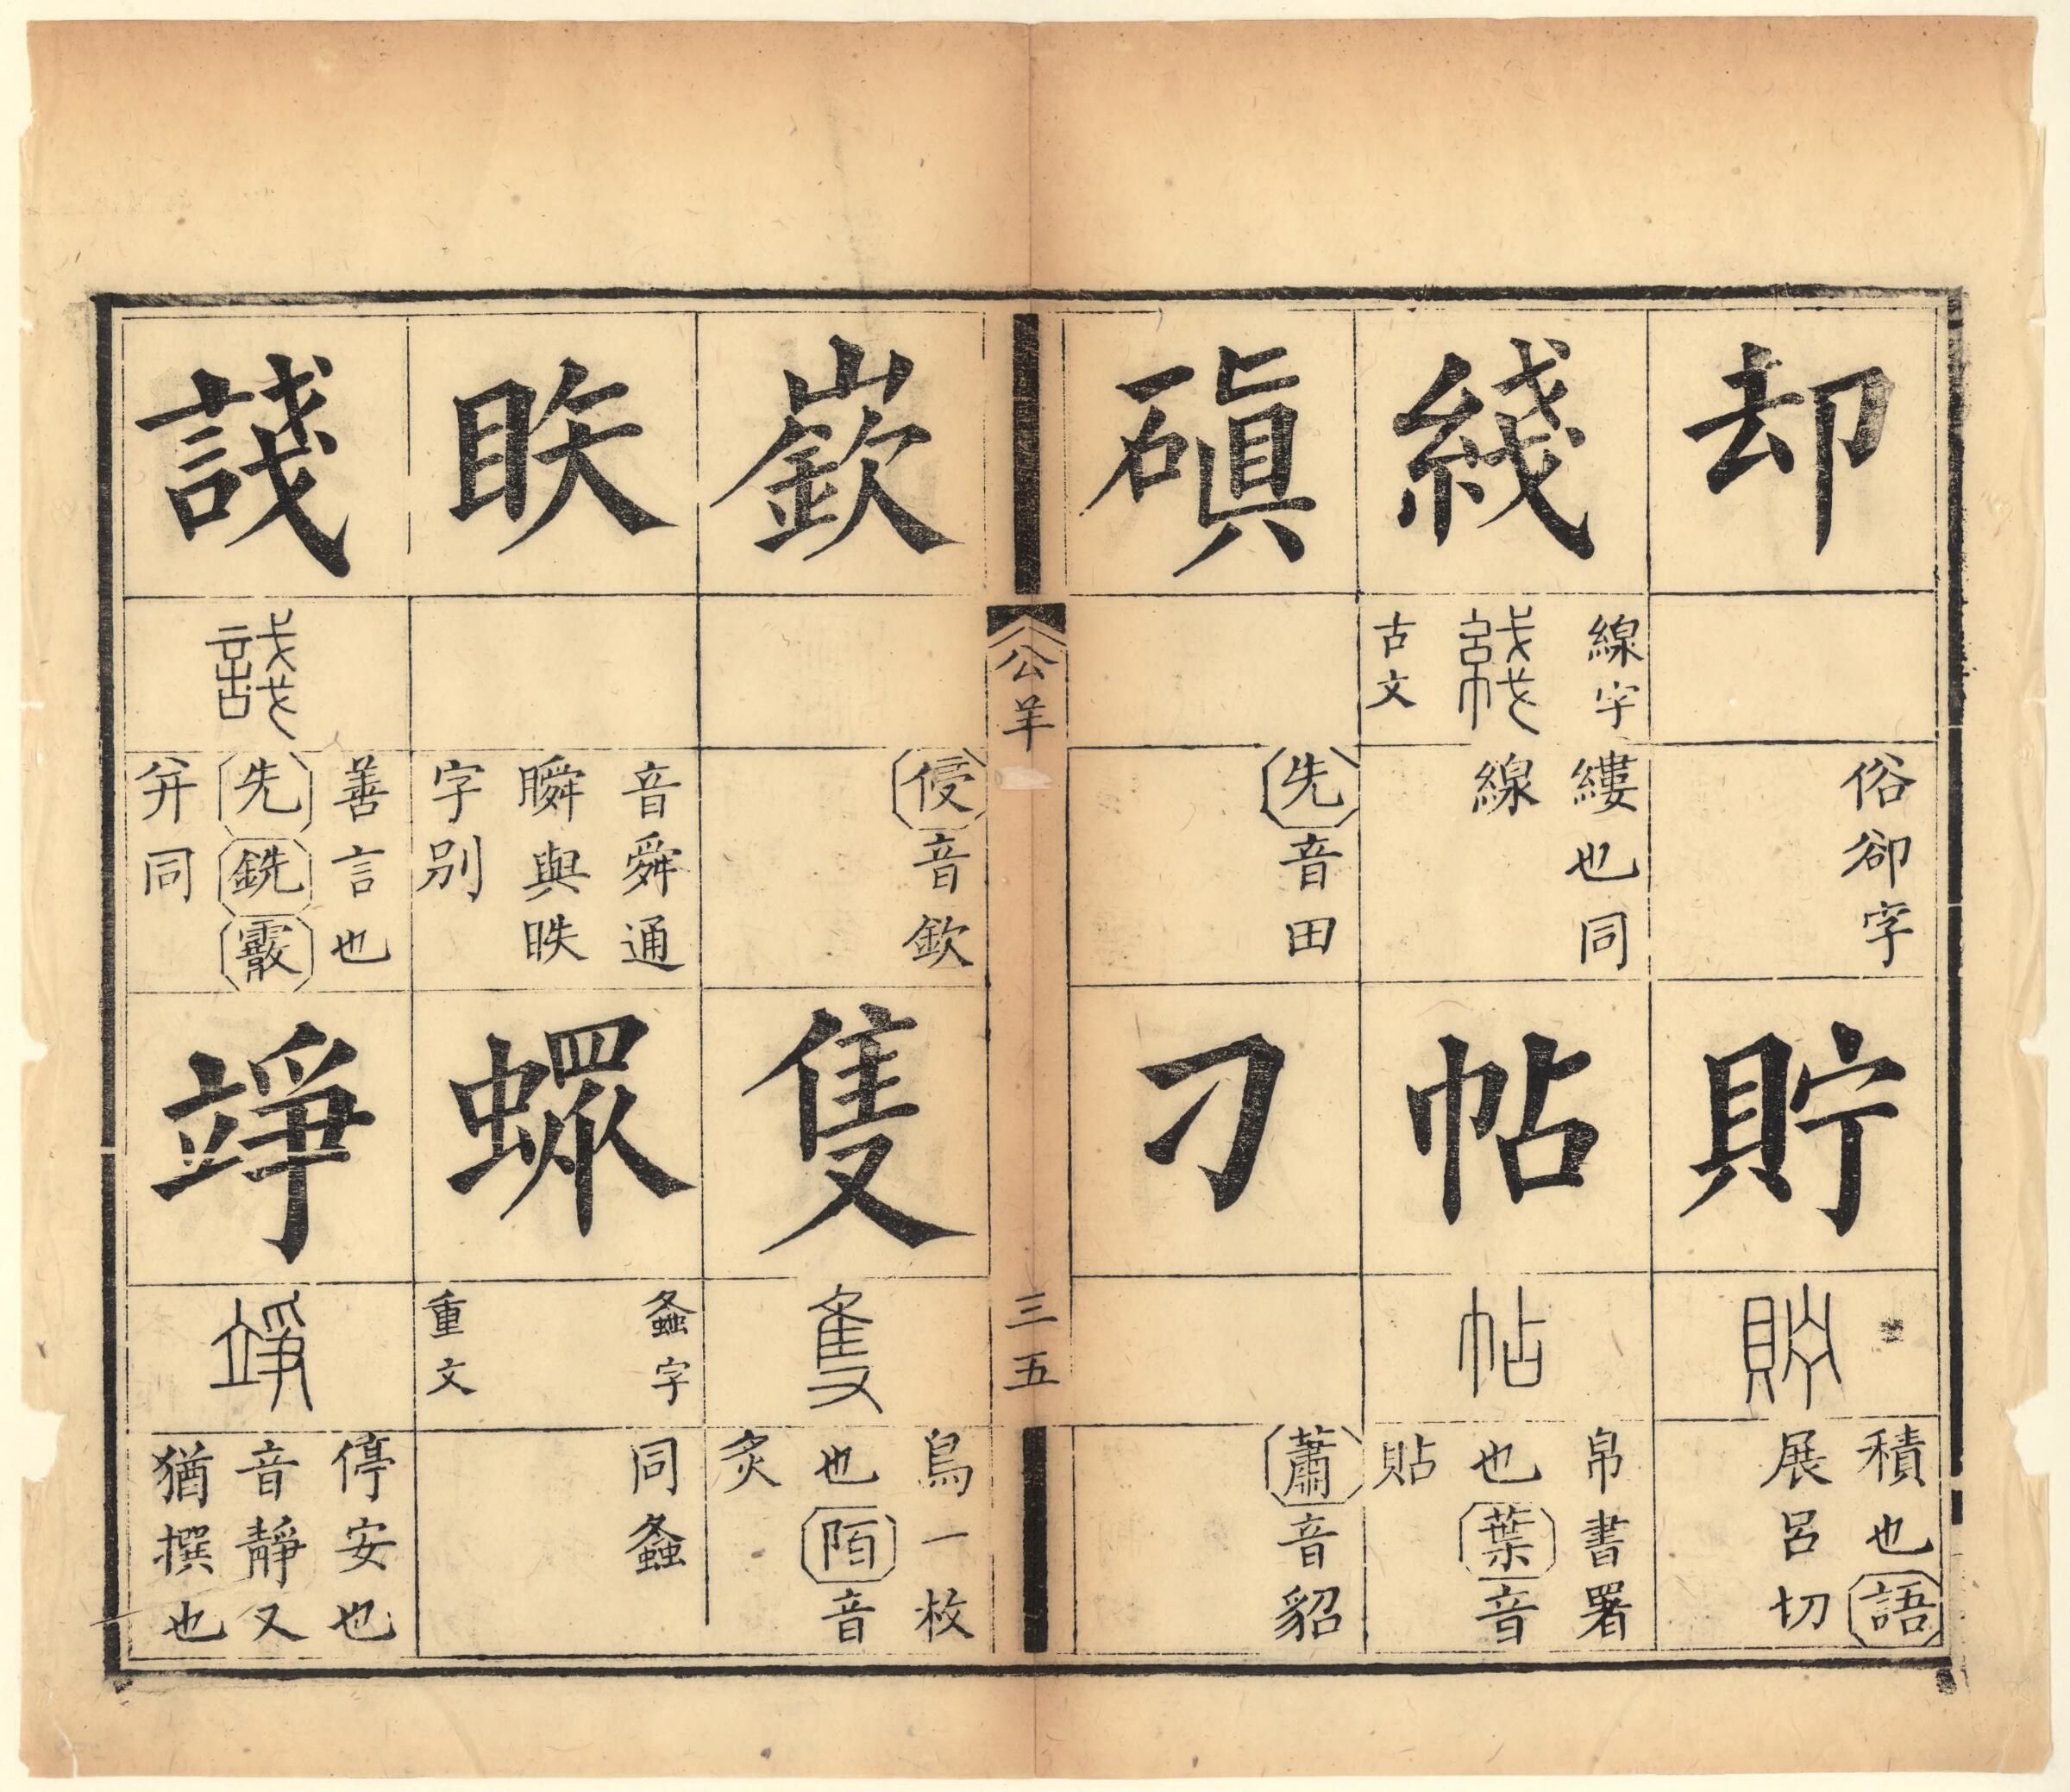 却
俗卻字
貯
貯
積也語
展呂切
綫
線字
綫
古文
縷也同
線
帖
帖
帛書署
也葉音
貼
磌
先音田
刁
蕭音貂
公羊
三五
嶔
侵音欽
隻
隻
鳥一枚
也陌音
炙
䀢
音舜通
瞬與眣
字別
䗥
螽字
重文
同螽
諓
諓
善言也
先銑霰
并同
竫
竫
停安也
音靜又
猶撰也